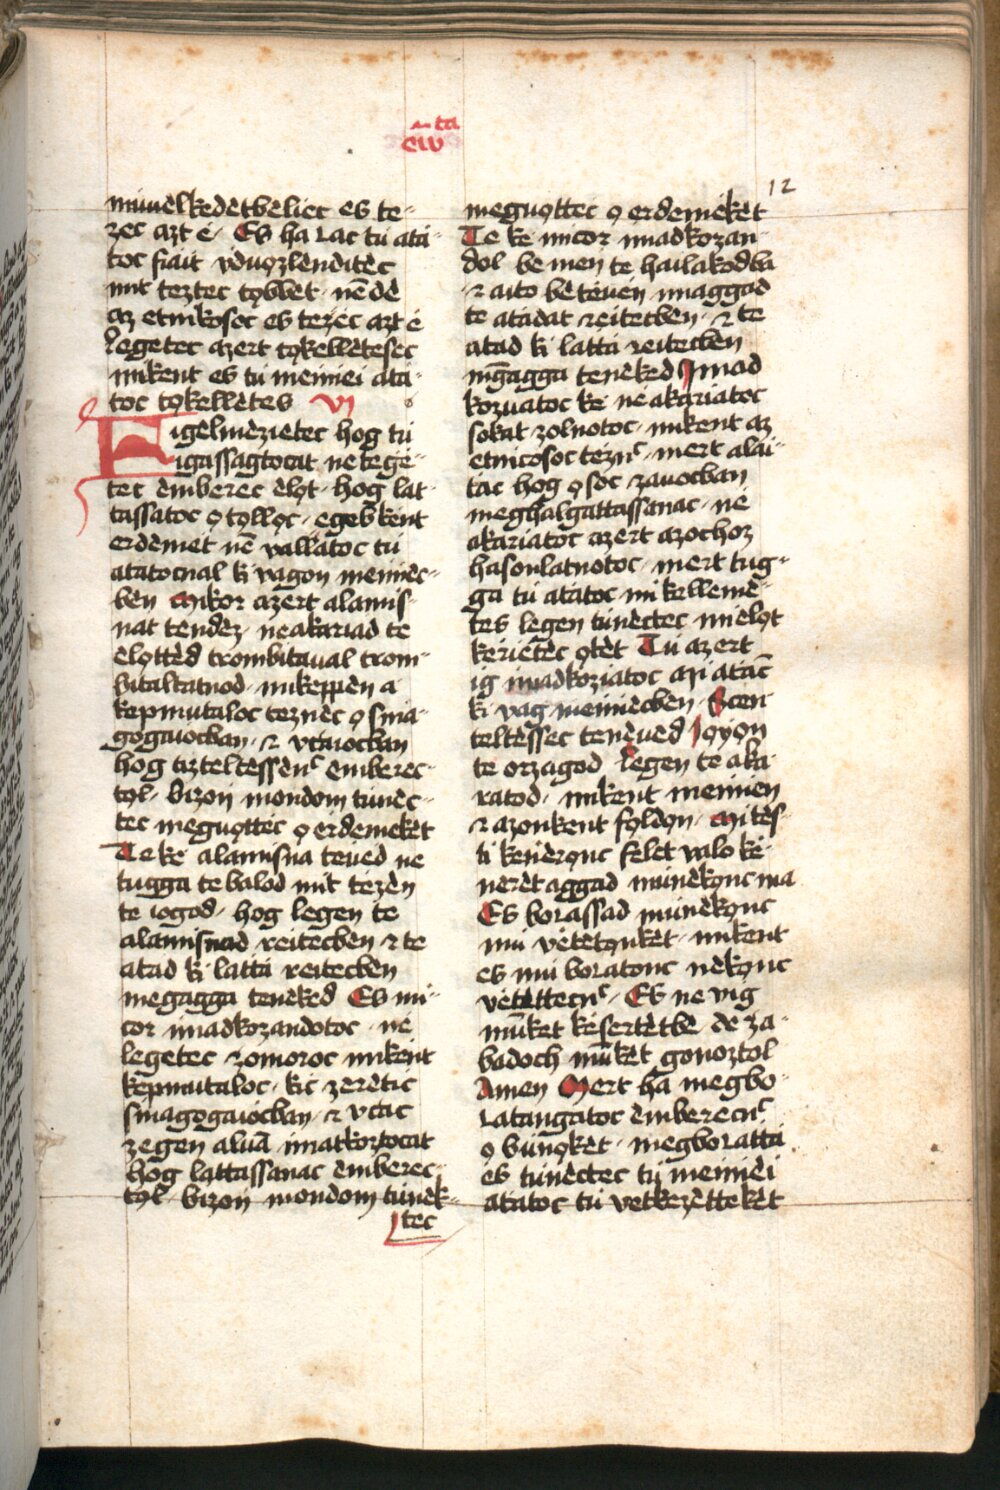 ētā
ēw
12
miuėlkedėtbėliec es te-
zec azt é· Es ha čac tú atá-
toc fiaít ýduozlendítėc
mit teztec tȯbbet· nė́dė
az etnikosoc es tezėc azt é
Legetec azert tȯkellėtesec
mikent es tú meńńėi atá-
toc tȯkellėtes vj
Figėlmėzietec hog tú
igassagtocat ne tegė-
tec ėmberec ėlȯt· hog lat-
tassatoc ȯ tȯllȯc· egėbkent
erdėmėt nė̄ valĺatoc tú
atatocnal ki vagon meńńėc-
bėn Mikor azert alamis-
nat tendėz· ne akariad te
ėlȯttėd trombitaual trom-
bitaltatnod· mikeppėn a
kepmutaloc teznėc ȯ sina-
gogaiocban· ⁊ vtcaiocban
hog tiztėltėssenc ėmberec-
tȯl· bizoń mondom túnėc-
tec meguȯttec ȯ érdemeket
Te ke alamisna tėuėd ne
tugga te balod mit tezėn
te iogod· hog legen te
alamisnad reitecbėn ⁊ te
atad ki latta reitecbėn
megagga tenėked Es mi-
cor imadkozandotoc· ne
legetec ⁊omoroc mikėnt
kepmutaloc· kic zerėtic
sinagogaiocban· ⁊ vtcac
zegen aluā imatkoztocat
hog lattassanac ėmberec-
tȯl· bizoń mondom túnėk-
tec
meguȯttec ȯ erdemėkėt
Te ke micor imadkozan-
dol be meń te hailakodba
⁊ aito bėtėuėn imaggad
te atadat reitecbėn· ⁊ te
atad ki latta reitecbėn
mėgagga tenėked Imad
kozuatoc ke ne akariatoc
sokat zolnotoc· mikent az
etnicosoc tėznc· mert alaí-
tac hog ȯ soc zauocban
meghalgattassanac· nė
akariatoc azert azochoz
hasonlatnotoc· mert tug-
ga tú atatoc mi kellemė-
tes legen túnėctec mielȯt
kerietec ȯtėt Tú azert
ig imadkoziatoc Mi atāc
ki vag meńńėcbėn· Scen-
tėltėssec te nėuėd Ioȳȯn
te orzagod Legen te aka-
ratod· mikent meńńėn
⁊ azonkent fȯldȯn· Mi tės-
ti keńėrȯnc felet valo ke-
ńėrėt aggad múnėkȯnc ma
Es bočassad múnėkȯnc
mú vėtėtȯnkėt· mikent
es mú bočatonc nėkȯnc
vetėttecnc· Es ne vig
mú̄ket kėsertėtbe· de za-
badoch mú̄kėt gonoztol
Amen Mert ha megbo-
čatangatoc ėmberecnc
ȯ búnȯkėt· megbočattá
es túnėctec tú meńńėi
atatoc tú vetkezėttekėt